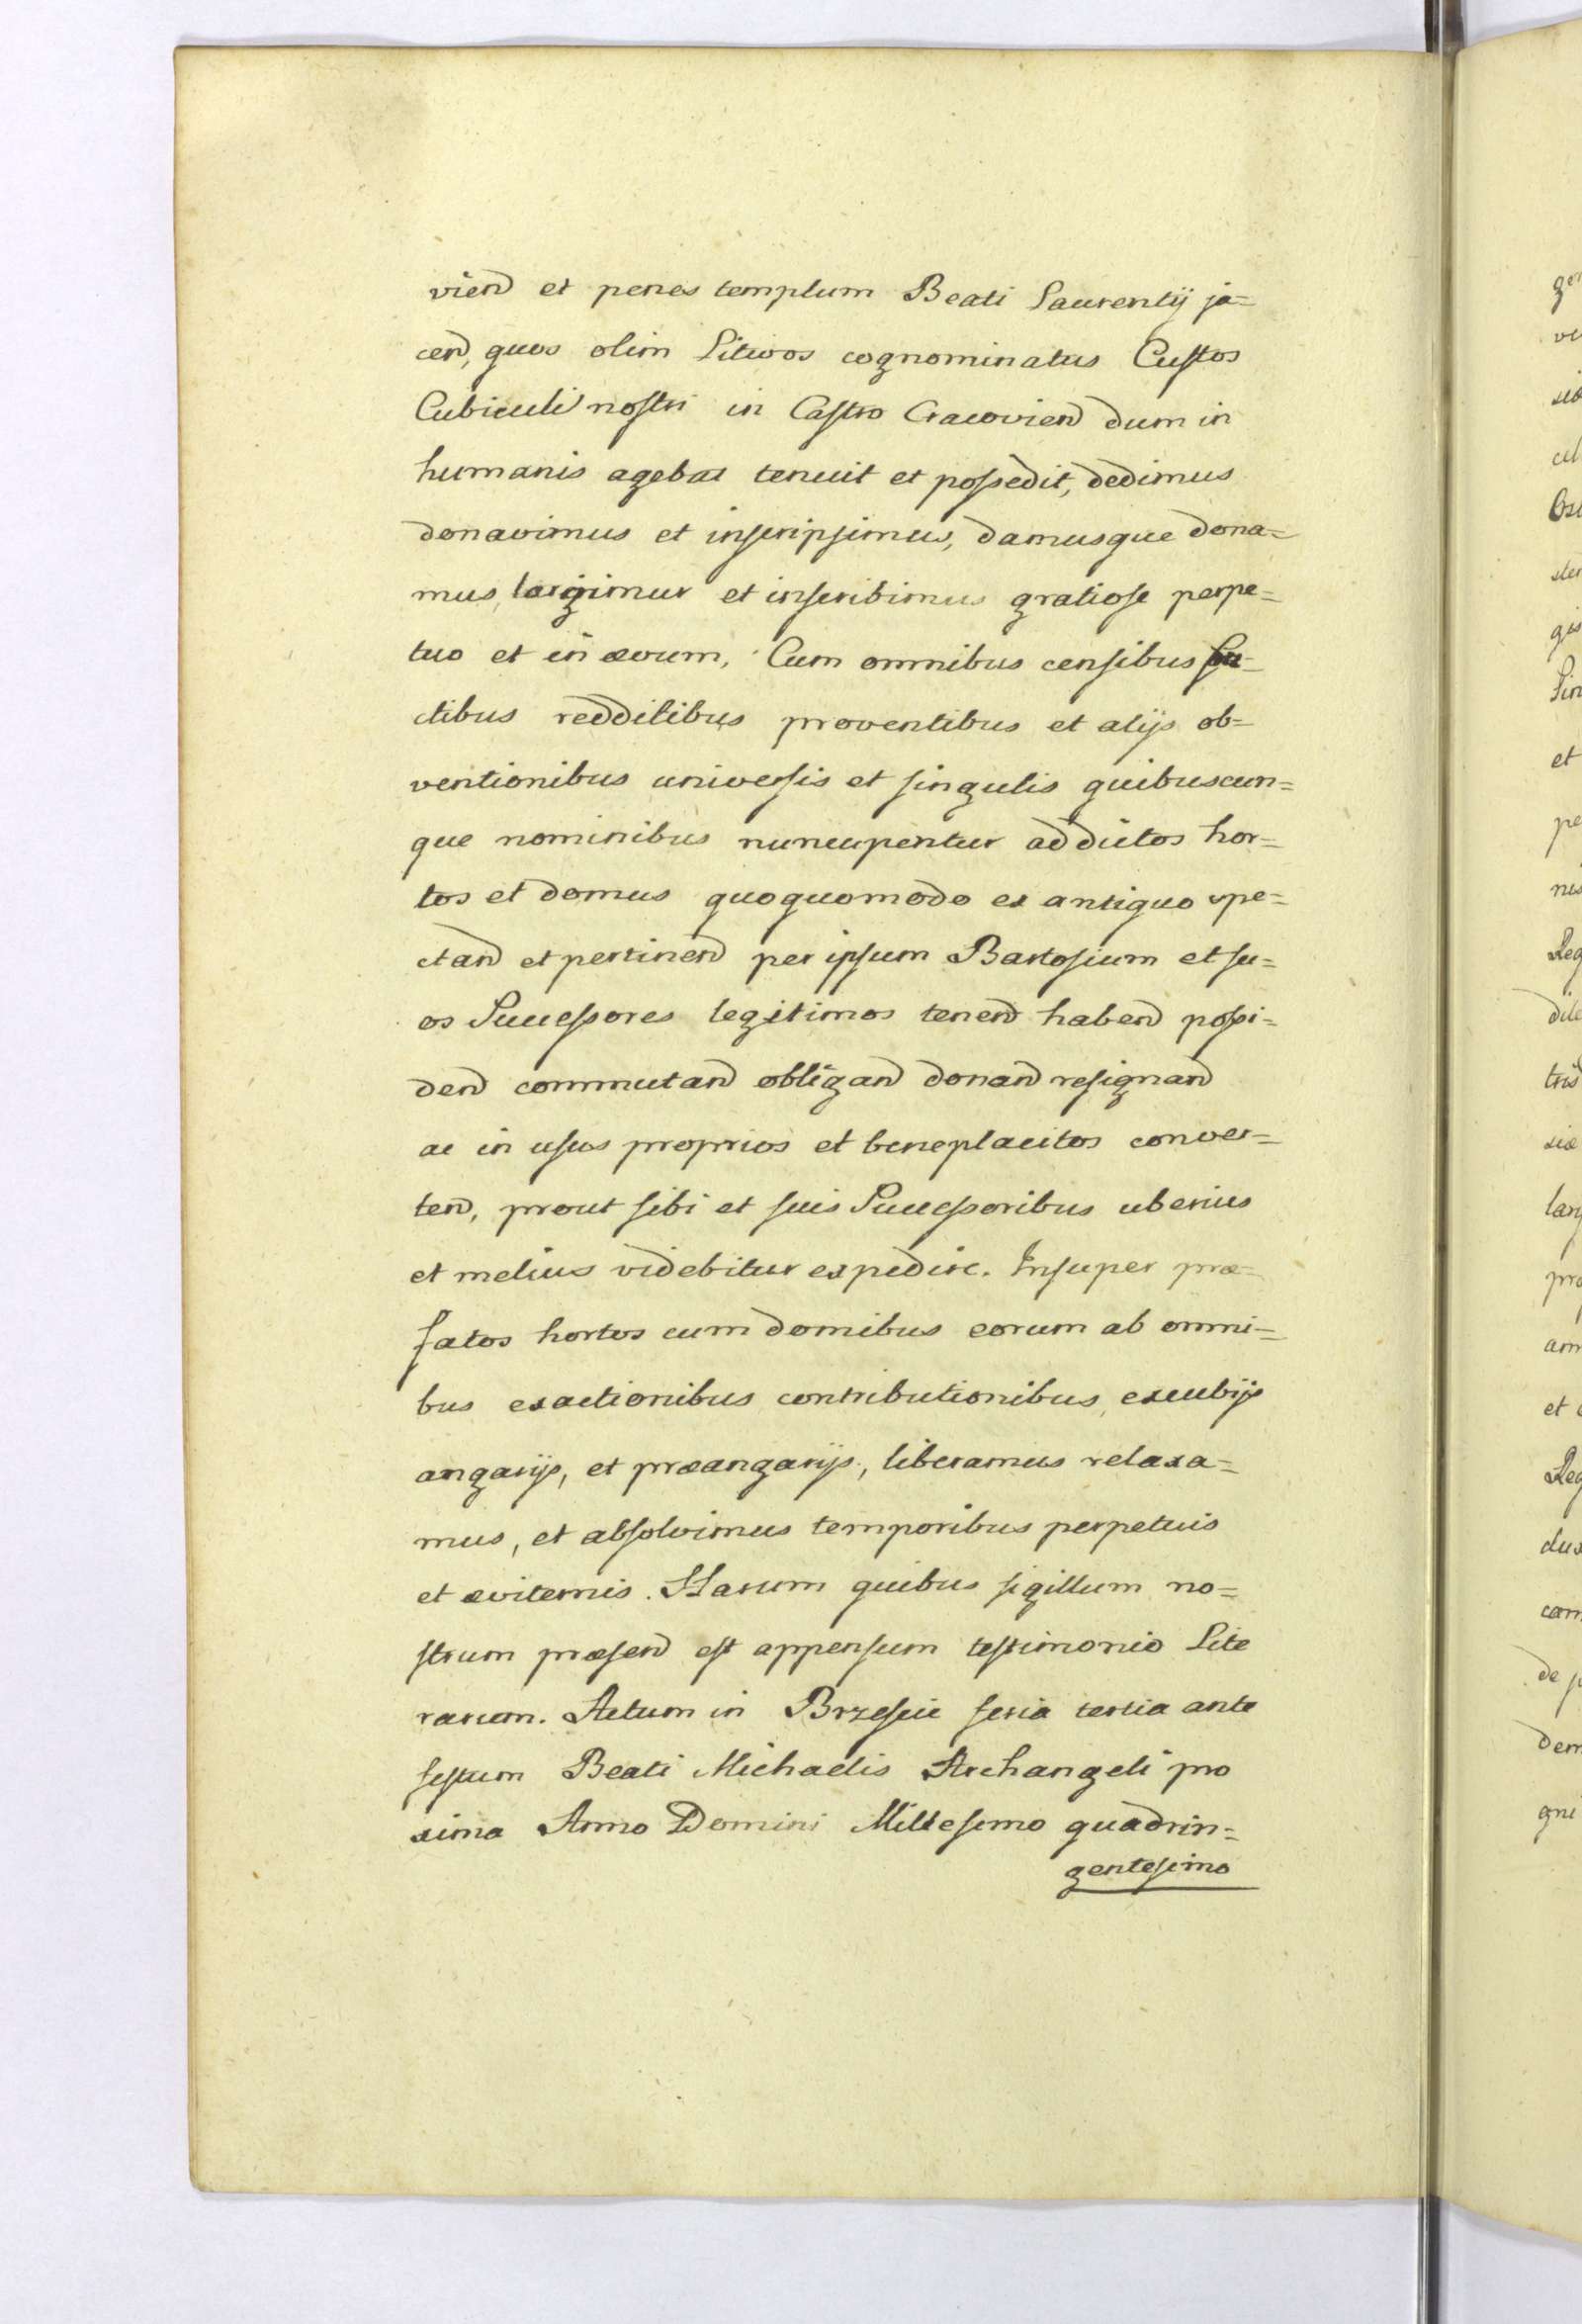 viend et penes templum Beati Laurentij ja=
cend, quos olim Litwos cognominatus Custos
Cubiculi nostri in Castro Cracoviend dum in
humanis agebat tenuit et possedit, dedimus
donavimus et inscripsimus, damusque dona=
mus, largimur et inscribimus gratiose perpe=
tuo et in ævum, Cum omnibus censibus fru=
ctibus redditibus proventibus et alijs ob=
ventionibus universis et singulis quibuscun=
que nominibus nuncupentur ad dictos hor=
tos et domus quoquomodo ex antiquo spe=
ctand et pertinend per ipsum Bartosium et su=
os Successores legitimos tenend habend possi=
dend commutand obligand donand resignand
ac in usus proprios et beneplacitos conver=
tend, prout sibi et suis Successoribus uberius
et melius videbitur expedire. Insuper præ=
fatos hortos cum domibus eorum ab omni=
bus exactionibus contributionibus, excubijs
angarijs, et præangarijs, liberamus relaxa=
mus, et absolvimus temporibus perpetuis
et æviternis. Harum quibus sigillum no=
strum præsend est appensum testimonio Lite
rarum. Actum in Brzescie feria tertia ante
festum Beati Michaelis Archangeli pro
xima Anno Domini Millesimo quadrin=
gentesimo